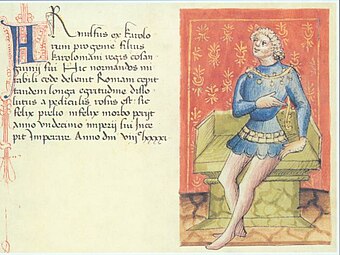 ARnulfus ex karolo
rum progenie filius
karolomani regis cosan
guinij sui Hic normandos mi
rabili cede delevit Romam cepit
tandem longa egritudine disso
lutus a pediculis rosus est sic
felix prelio infelix morbo perijt
anno vndecimo imperij sui Ince
pit Imperare Anno dni viijc lxxxxi